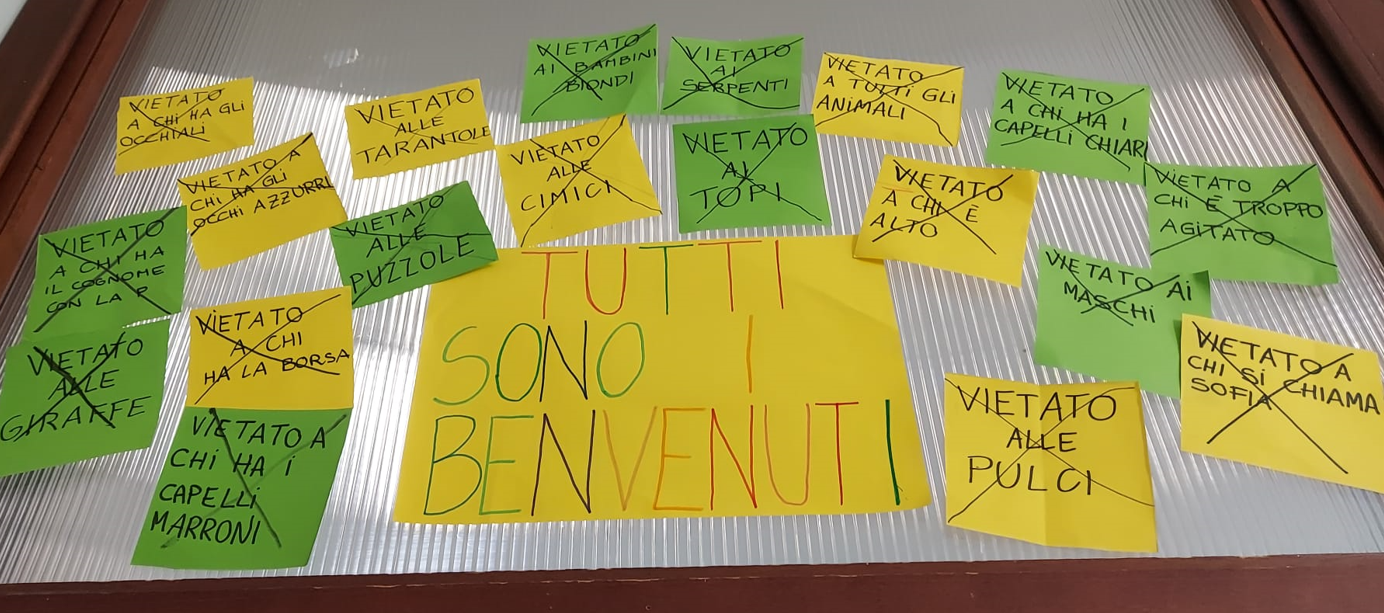 VIETATO
AI BAMBINI
BIONDI
VIETATO
AI
SERPENTI
VIETATO
A TUTTI GLI
ANIMALI
VIETATO
A CHI HA I
CAPELLI CHIARI
VIETATO
A CHI HA GLI
OCCHIALI
VIETATO
ALLE
TARANTOLE
VIETATO A
CHI HA GLI
OCCHI AZZURRI
VIETATO
ALLE
CIMICI
VIETATO
AI
TOPI
VIETATO
A CHI È
ALTO
VIETATO A
CHI È TROPPO
AGITATO
VIETATO
A CHI HA
IL COGNOME
CON LA P
VIETATO
ALLE
PUZZOLE
VIETATO AI
MASCHI
VIETATO
ALLE
GIRAFFE
VIETATO
A CHI
HA LA BORSA
VIETATO A
CHI SI CHIAMA
SOFIA
VIETATO A
CHI HA I
CAPELLI
MARRONI
TUTTI
SONO I
BENVENUTI
VIETATO
ALLE
PULCI